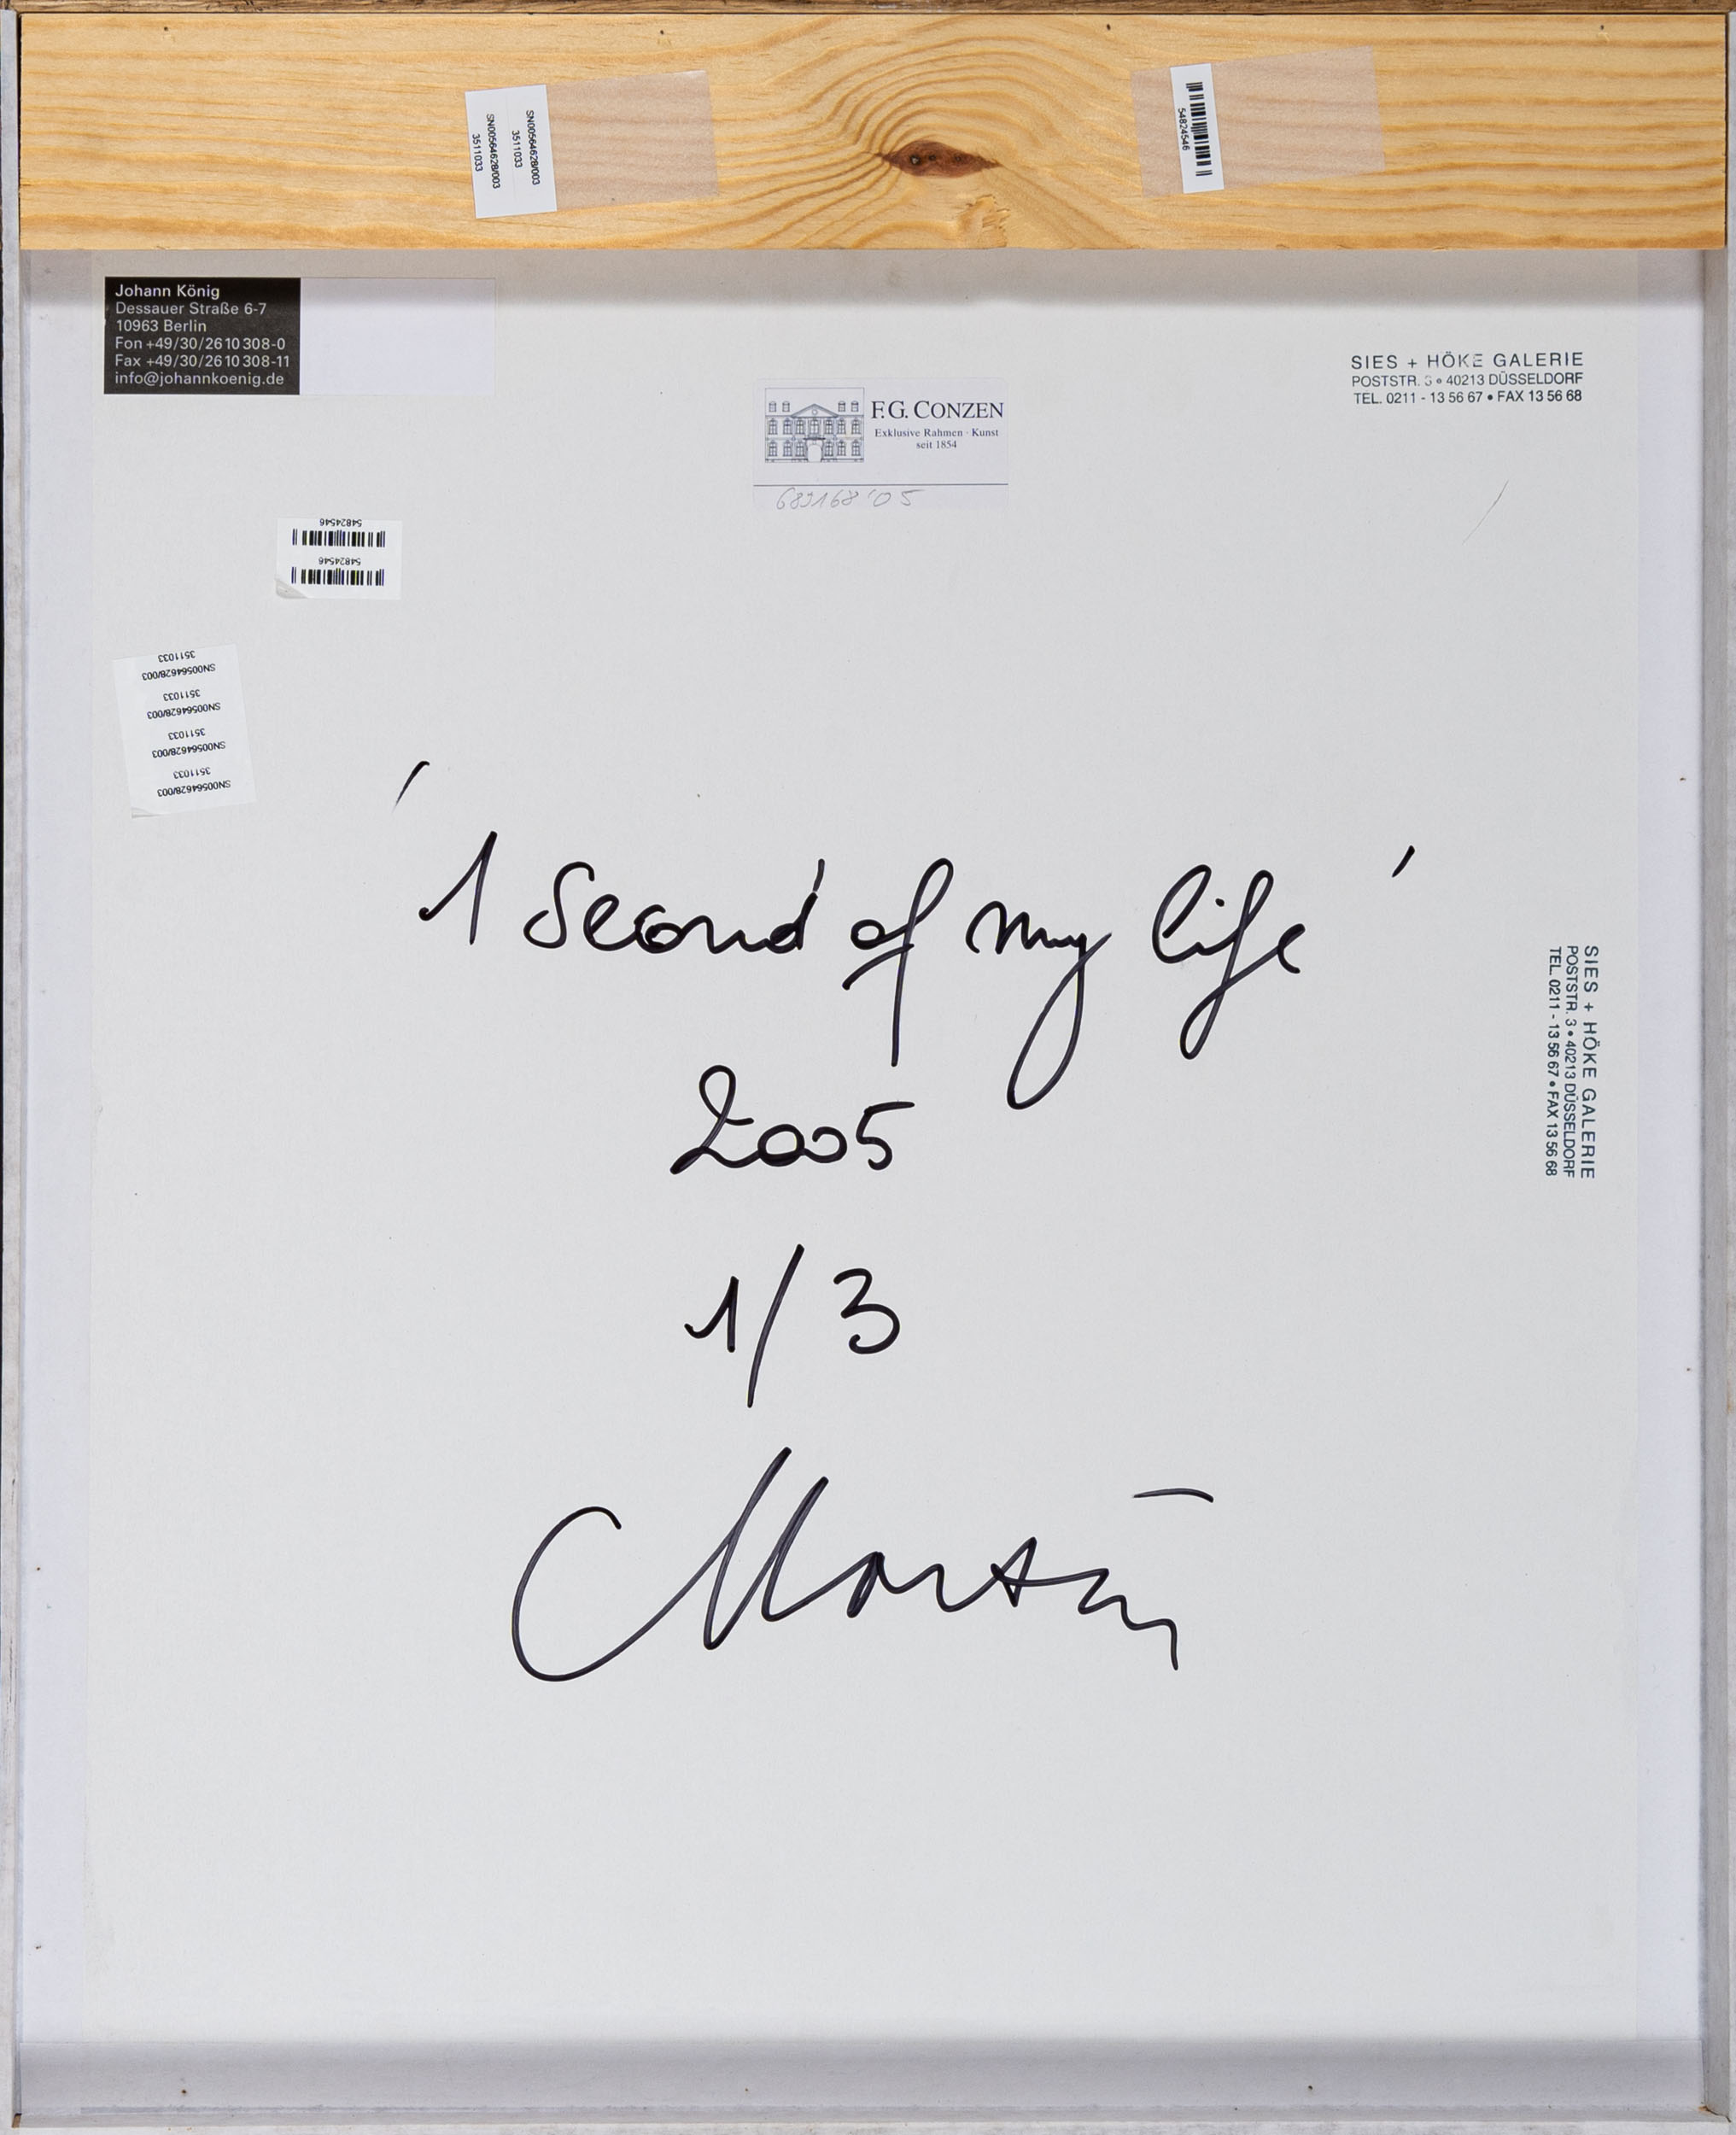 SN00564628/003
3511033
SN00564628/003
3511033
54824546
Johann König
Dessauer Straße 6-7
10963 Berlin
Fon +49/30/26 10 308-0
Fax +49/30/26 10 308-11
info@johannkoenig.de
F.G. CONZEN
Exklusive Rahmen · Kunst
seit 1854
689168'05
SIES + HÖKE GALERIE
POSTSTR. 3 • 40213 DÜSSELDORF
TEL. 0211 - 13 56 67 • FAX 13 56 68
54824546
54824546
SN00564628/003
3511033
SN00564628/003
3511033
SN00564628/003
3511033
SN00564628/003
3511033
'1 Second of my life'
2005
1/3
SIES + HÖKE GALERIE
POSTSTR. 3 • 40213 DÜSSELDORF
TEL. 0211 - 13 56 67 • FAX 13 56 68